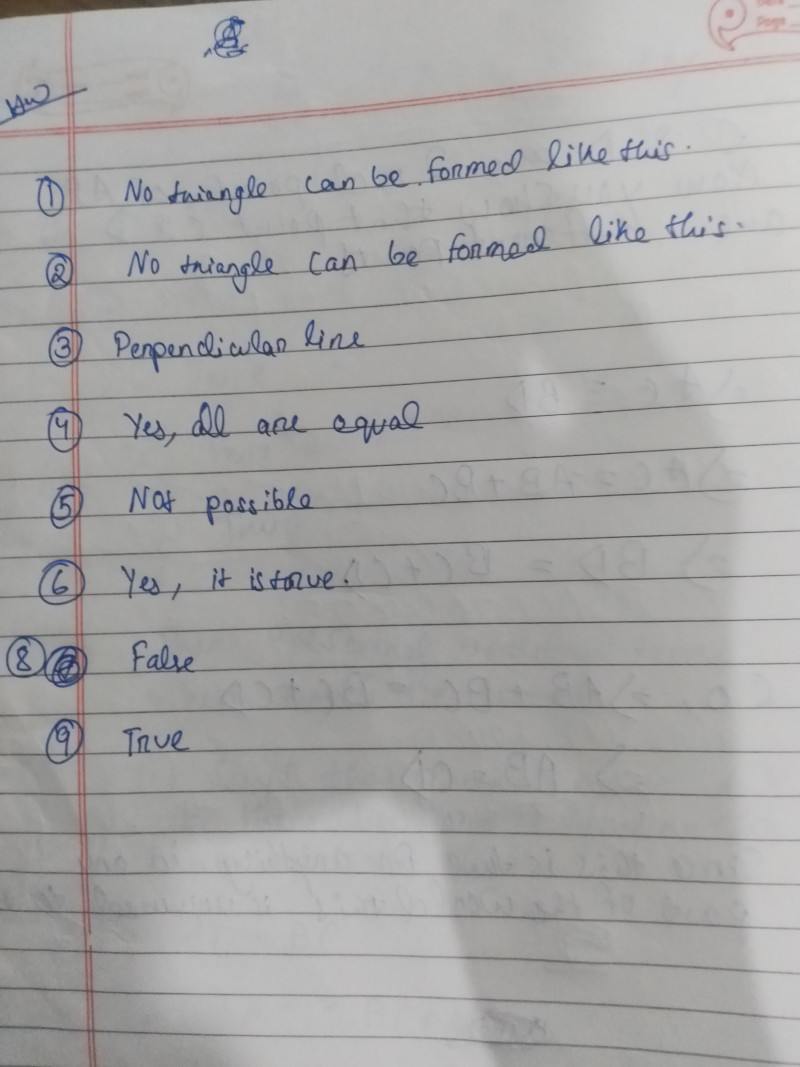 Page
HW
① No triangle can be formed like this.
② No triangle can be formed like this.
③ Perpendicular line
④ Yes, all are equal
⑤ Not possible
⑥ Yes, it is true.
⑧ False
⑨ True